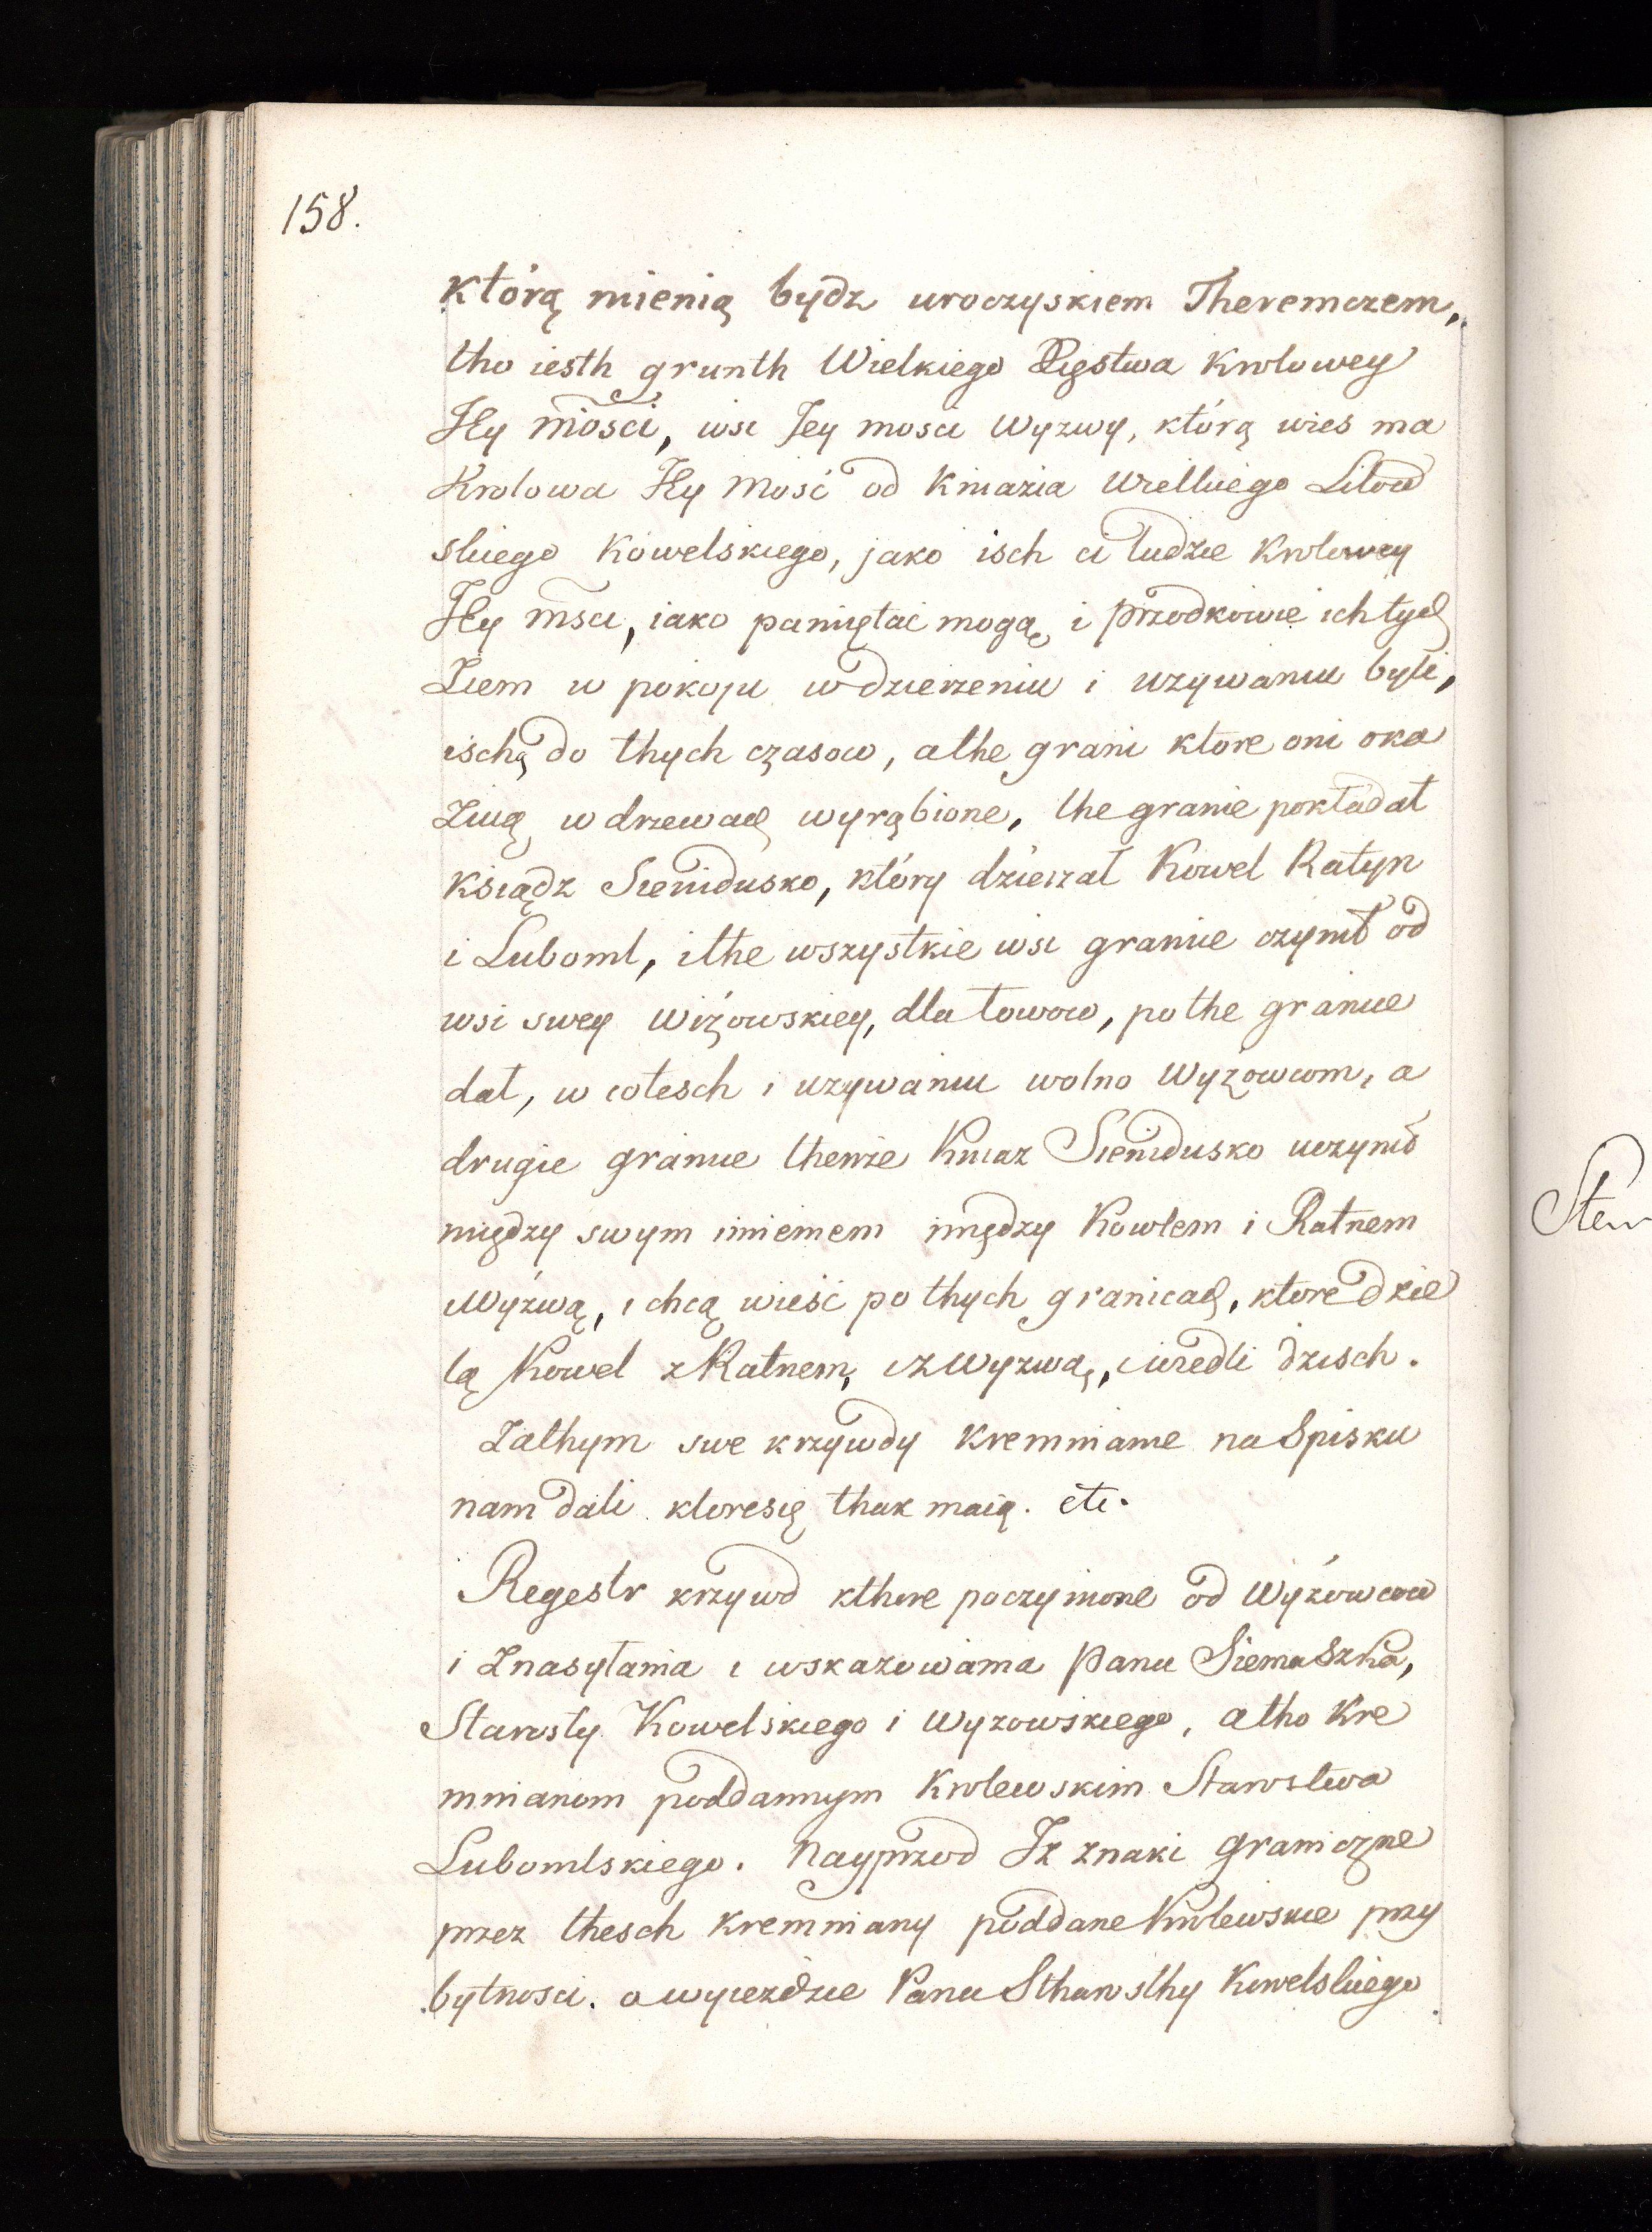 158.
którą mienią bydz uroczyskiem Theremczem,
tho iesth grunth Wielkiego Xięstwa Krolowey
Jey mości, wsi Jey mosci Wyzwy, którą wies ma
Krolowa Jey Mosć od Kniazia Wielkiego Litow
skiego Kowelskiego, jako isch ci ludzie Krolowey
Jey msci, iako pamiętać mogą, i przodkowie ich tych
Ziem w pokoju w dzierzeniu i uzywaniu byli,
ischą do thych czasow, a the grani ktore oni oka
Zuią w drzewach wyrąbione, the granie pokładał
Ksiądz Seniduszko, który dzierzał Kowel Ratyn
i Luboml, i the wszystkie wsi granie czynił od
wsi swey Wiżowskiey, dla łowow, po the granie
dał, w cotesch i uzywaniu wolno Wyżowcom, a
drugie granie thenże Kniaz Sienidusko uczynił
między swym imieniem między Kowlem i Ratnem
Wyźwą, i chcą wieść po thych granicach, ktore dzie
lą Kowel z Ratnem, i z Wyzwą, i wiedli dzisch.
Zathym swe krzywdy Kremnianie na Spisku
nam dali ktore się thak maią. etc.
Regestr krzywd kthore poczynione od Wyżowcow
i Znasyłania i wskazowania Pana Siemaszka,
Starosty Kowelskiego i Wyzowskiego, a tho Kre
mnianom poddannym Krolewskim Starostwa
Lubomlskiego. Nayprzod Iz znaki graniczne
przez thesch Kremniany poddane Krolewskie przy
bytnosci. a wyiezdzie Pana Stharosthy Kowelskiego